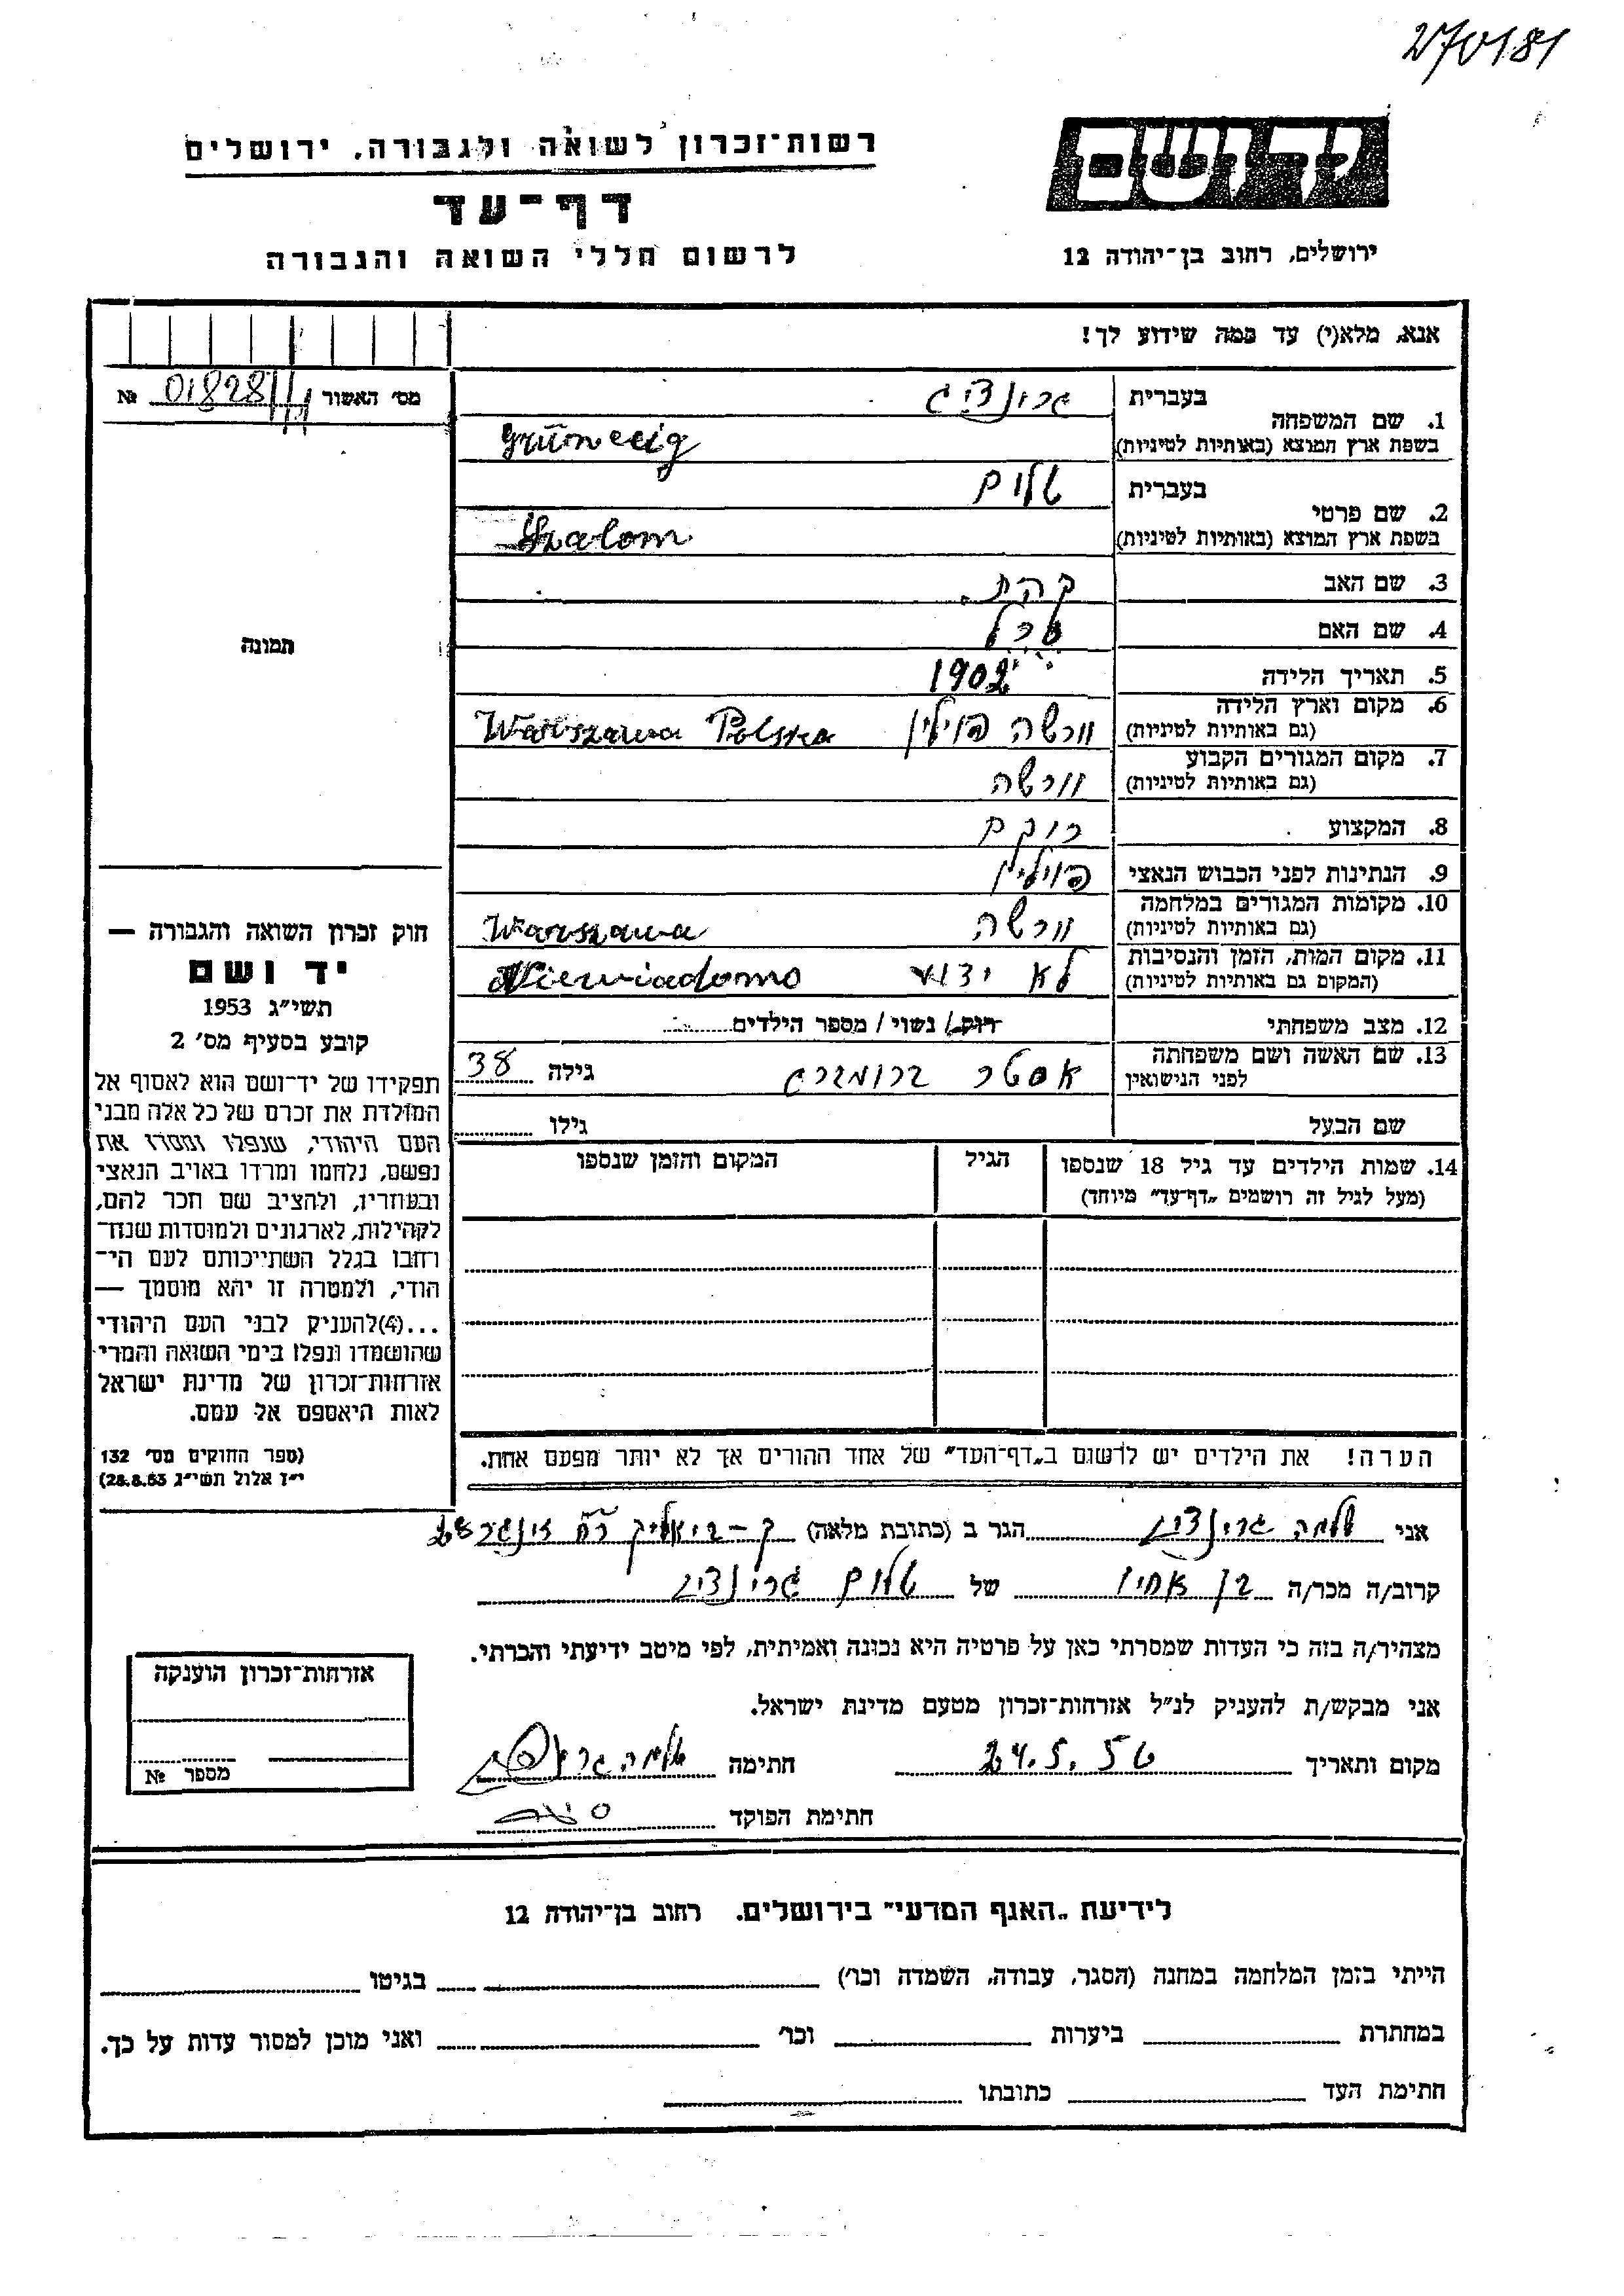 270181
רשות־זכרון לשואה ולגבורה, ירושלים
יד ושם
דף־עד
לרשום חללי השואה והגבורה
ירושלים, רחוב בן־יהודה 12
אנא, מלא(י) עד כמה שידוע לך!
מס׳ האשור 01828 №
1. שם המשפחה בעברית
בשפת ארץ המוצא (באותיות לטיניות)
2. שם פרטי בעברית שלום
בשפת ארץ המוצא (באותיות לטיניות) Szalom
3. שם האב קהת
4. שם האם
5. תאריך הלידה 1902
6. מקום וארץ הלידה ורשה פוילין Warszawa Polska
(גם באותיות לטיניות)
7. מקום המגורים הקבוע ורשה
(גם באותיות לטיניות)
8. המקצוע רוקח
9. הנתינות לפני הכבוש הנאצי פוילין
10. מקומות המגורים במלחמה ורשה Warszawa
(גם באותיות לטיניות)
11. מקום המות, הזמן והנסיבות לא ידוע Niewiadomo
(המקום גם באותיות לטיניות)
12. מצב משפחתי רווק / נשוי / מספר הילדים
13. שם האשה ושם משפחתה אסתר ברומברג גילה 38
לפני הנישואין
שם הבעל גילו
14. שמות הילדים עד גיל 18 שנספו הגיל המקום והזמן שנספו
(מעל לגיל זה רושמים „דף־עד” מיוחד)
הערה! את הילדים יש לרשום ב„דף־העד” של אחד ההורים אך לא יותר מפעם אחת.
תמונה
חוק זכרון השואה והגבורה —
יד ושם
תשי״ג 1953
קובע בסעיף מס׳ 2
תפקידו של יד־ושם הוא לאסוף אל
המולדת את זכרם של כל אלה מבני
העם היהודי, שנפלו ומסרו את
נפשם, נלחמו ומרדו באויב הנאצי
ובעוזריו, ולהציב שם וזכר להם,
לקהילות, לארגונים ולמוסדות שנח־
רחבו בגלל השתייכותם לעם הי־
הודי, ולמטרה זו יהא מוסמך —
...(4)להעניק לבני העם היהודי
שהושמדו ונפלו בימי השואה והמרי
אזרחות־זכרון של מדינת ישראל
לאות היאספם אל עמם.
(ספר החוקים מס׳ 132
י״ז אלול תשי״ג 28.8.53)
אני שלמה הגר ב (כתובת מלאה) ק־ביאליק רח
קרוב/ה מכר/ה בן אחיו של שלום
מצהיר/ה בזה כי העדות שמסרתי כאן על פרטיה היא נכונה ואמיתית, לפי מיטב ידיעתי והכרתי.
אני מבקש/ת להעניק לנ״ל אזרחות־זכרון מטעם מדינת ישראל.
מקום ותאריך 24.5.56 חתימה
חתימת הפוקד
אזרחות־זכרון הוענקה
מספר №
לידיעת „האגף המדעי” בירושלים. רחוב בן־יהודה 12
הייתי בזמן המלחמה במחנה (הסגר, עבודה, השמדה וכו׳) בגיטו
במחתרת ביערות וכו׳ ואני מוכן למסור עדות על כך.
חתימת העד כתובתו